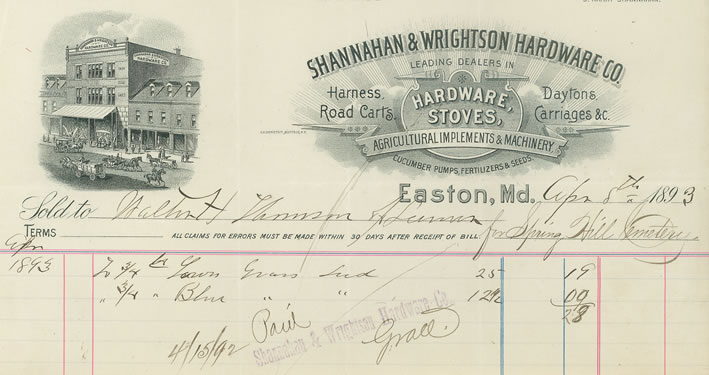 SHANNAHAN & WRIGHTSON HARDWARE CO.
LEADING DEALERS IN
Harness,
Road Carts,
HARDWARE,
STOVES,
Daytons,
Carriages &c.
AGRICULTURAL IMPLEMENTS & MACHINERY.
CUCUMBER PUMPS, FERTILIZERS & SEEDS.
Easton, Md. Apr 8th 1893
Sold to Walter H Thomson
TERMS ALL CLAIMS FOR ERRORS MUST BE MADE WITHIN 30 DAYS AFTER RECEIPT OF BILL. for Spring Hill Cemetery
Apr
1893 To 3/4 Lawn Grass Seed 25 19
" 3/4 " Blue " " 12 09
28
Paid
Shannahan & Wrightson Hardware Co.